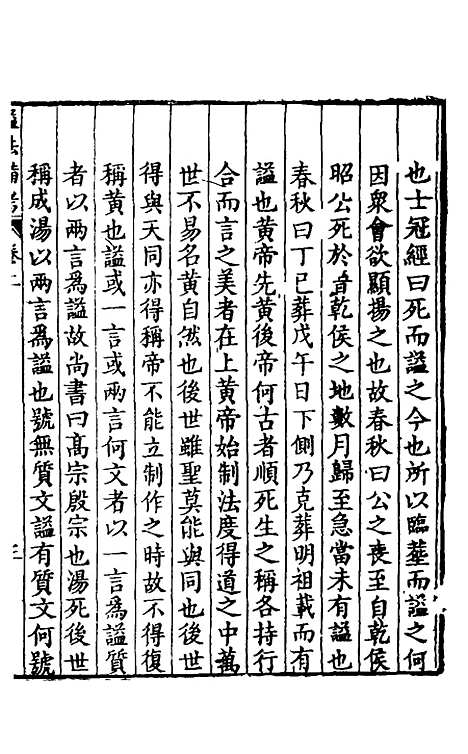 也士冠經曰死而謚之今也所以臨塟而謚之何
因衆會欲顯揚之也故春秋曰公之喪至自乾侯
昭公死於晉乾侯之地數月歸至急當未有謚也
春秋曰丁巳葬戊午日下側乃克葬明祖載而有
謚也黄帝先黄後帝何古者順死生之稱各持行
合而言之美者在上黄帝始制法度得道之中萬
世不易名黄自然也後世雖聖莫能與同也後世
得與天同亦得稱帝不能立制作之時故不得復
稱黄也謚或一言或兩言何文者以一言爲謚質
者以兩言爲謚故尚書曰髙宗殷宗也湯死後世
稱成湯以兩言爲謚也號無質文謚有質文何號
謚法備考 卷二 三